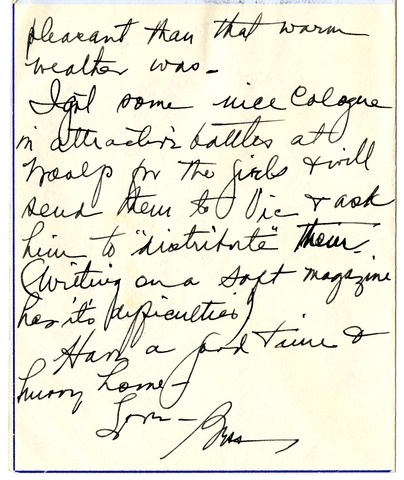 pleasant than that warm
weather was -
I got some nice Cologne
in attractive bottles at
for the girls & will
send them to Vic & ask
him to "distribute" them.
(Writing on a soft magazine
has it's difficulties)
Have a good time &
hurry home -
Love - Bess